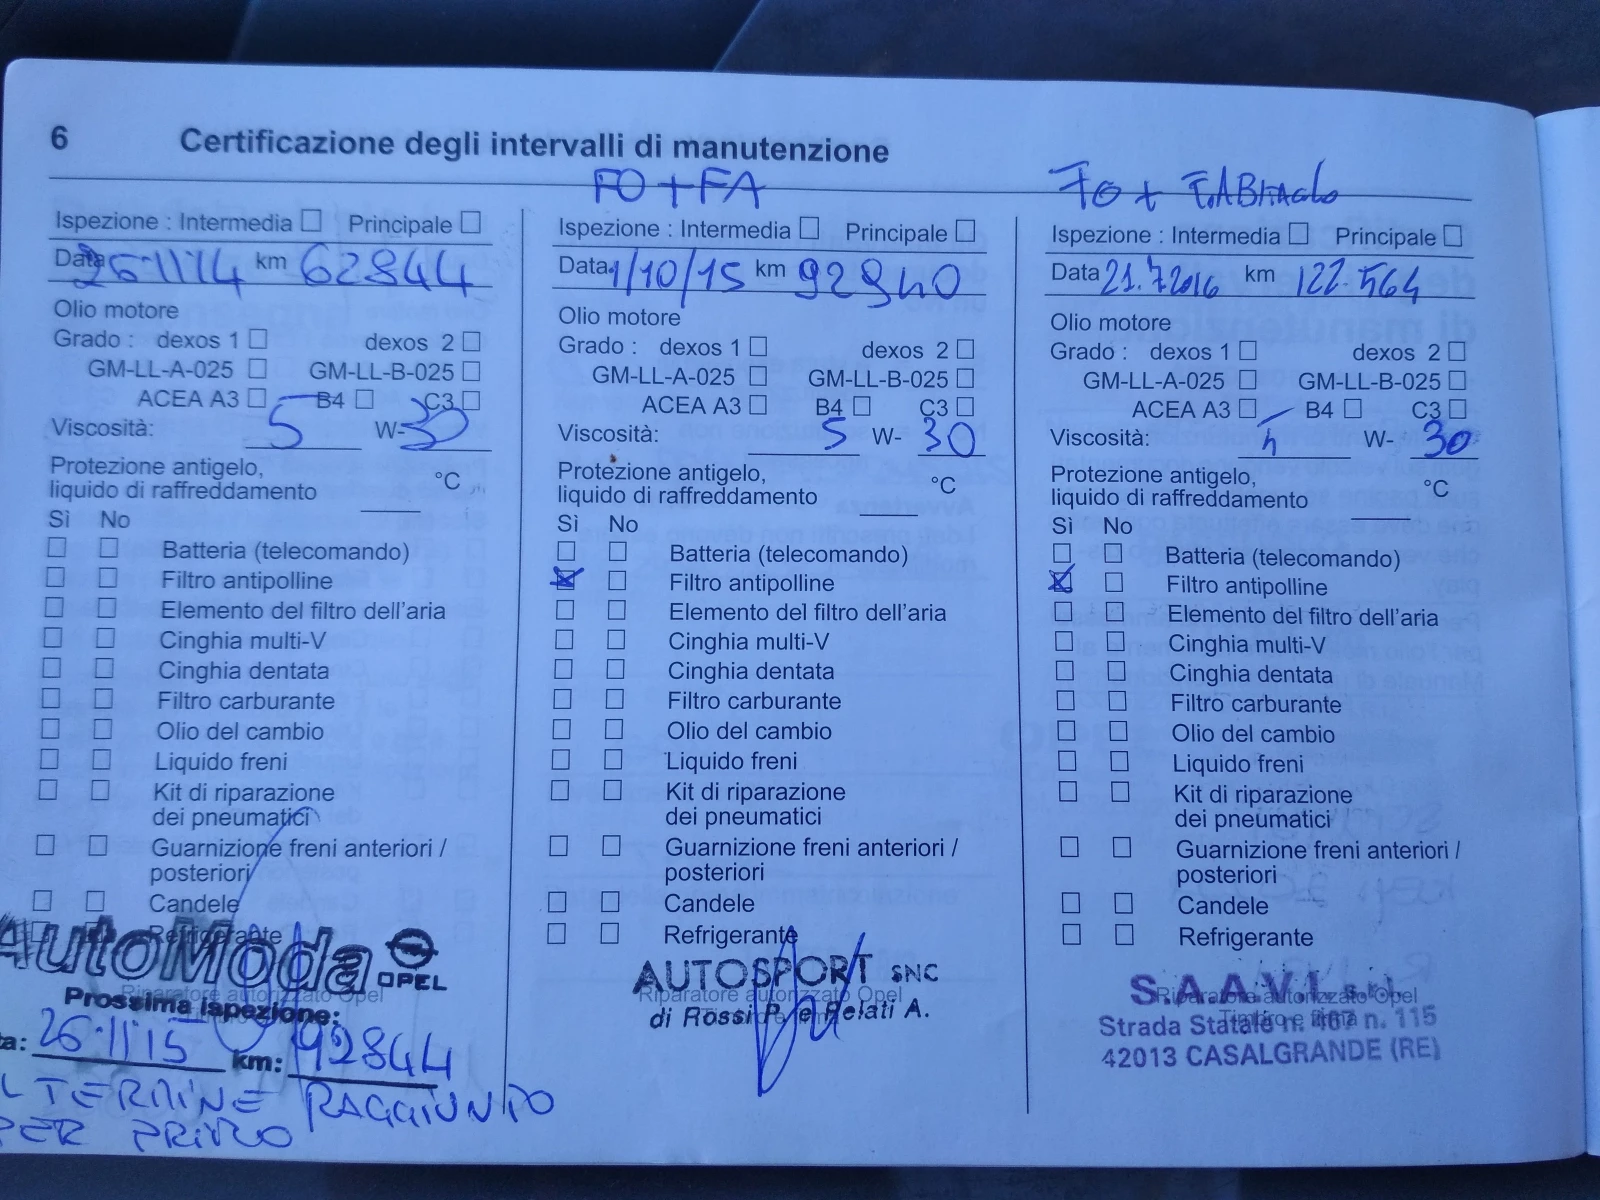 6 Certificazione degli intervalli di manutenzione
FO + FA
Ispezione : Intermedia Principale
Data 26 11 14 km 62844
Olio motore
Grado : dexos 1 dexos 2
GM-LL-A-025 GM-LL-B-025
ACEA A3 B4 C3
Viscosità: 5 W- 30
Protezione antigelo,
liquido di raffreddamento °C
Sì No
Batteria (telecomando)
Filtro antipolline
Elemento del filtro dell'aria
Cinghia multi-V
Cinghia dentata
Filtro carburante
Olio del cambio
Liquido freni
Kit di riparazione
dei pneumatici
Guarnizione freni anteriori /
posteriori
Candele
Refrigerante
AutoModa OPEL
Riparatore autorizzato Opel
Prossima ispezione:
ta: 26 11 15 km: 92844
L TERMINE RAGGIUNTO
PER PRIMO
Ispezione : Intermedia Principale
Data 1/10/15 km 92940
Olio motore
Grado : dexos 1 dexos 2
GM-LL-A-025 GM-LL-B-025
ACEA A3 B4 C3
Viscosità: 5 W- 30
Protezione antigelo,
liquido di raffreddamento °C
Sì No
Batteria (telecomando)
Filtro antipolline
Elemento del filtro dell'aria
Cinghia multi-V
Cinghia dentata
Filtro carburante
Olio del cambio
Liquido freni
Kit di riparazione
dei pneumatici
Guarnizione freni anteriori /
posteriori
Candele
Refrigerante
AUTOSPORT SNC
Riparatore autorizzato Opel
di Rossi P. e Relati A.
FO +
Ispezione : Intermedia Principale
Data 21.7 2016 km 122.564
Olio motore
Grado : dexos 1 dexos 2
GM-LL-A-025 GM-LL-B-025
ACEA A3 B4 C3
Viscosità: 5 W- 30
Protezione antigelo,
liquido di raffreddamento °C
Sì No
Batteria (telecomando)
Filtro antipolline
Elemento del filtro dell'aria
Cinghia multi-V
Cinghia dentata
Filtro carburante
Olio del cambio
Liquido freni
Kit di riparazione
dei pneumatici
Guarnizione freni anteriori /
posteriori
Candele
Refrigerante
S.A.A.V.I. s.r.l.
Riparatore autorizzato Opel
Timbro e firma
Strada Statale n. 467 n. 115
42013 CASALGRANDE (RE)